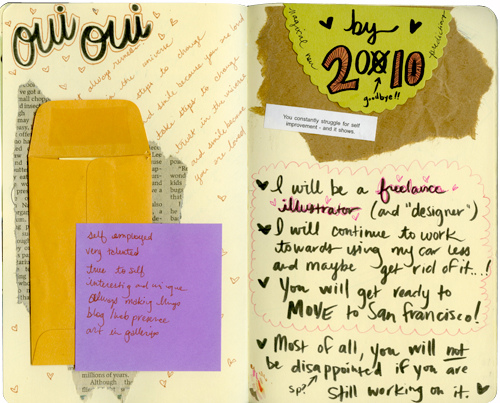 oui oui
always remember
the universe
steps to change
and smile because you are loved
take steps to change
trust in the universe
and smile because
you are loved
self employed
very talented
true to self
interesting and unique
always making things
blog/web presence
art in galleries
millions of years.
Although the
magical new
predictions
by
2010
goodbye!!
You constantly struggle for self
improvement - and it shows.
I will be a freelance
illustrator (and "designer")
I will continue to work
towards using my car less
and maybe get rid of it..!
You will get ready to
MOVE to San francisco!
Most of all, you will not
be disappointed if you are
sp?
Still working on it.